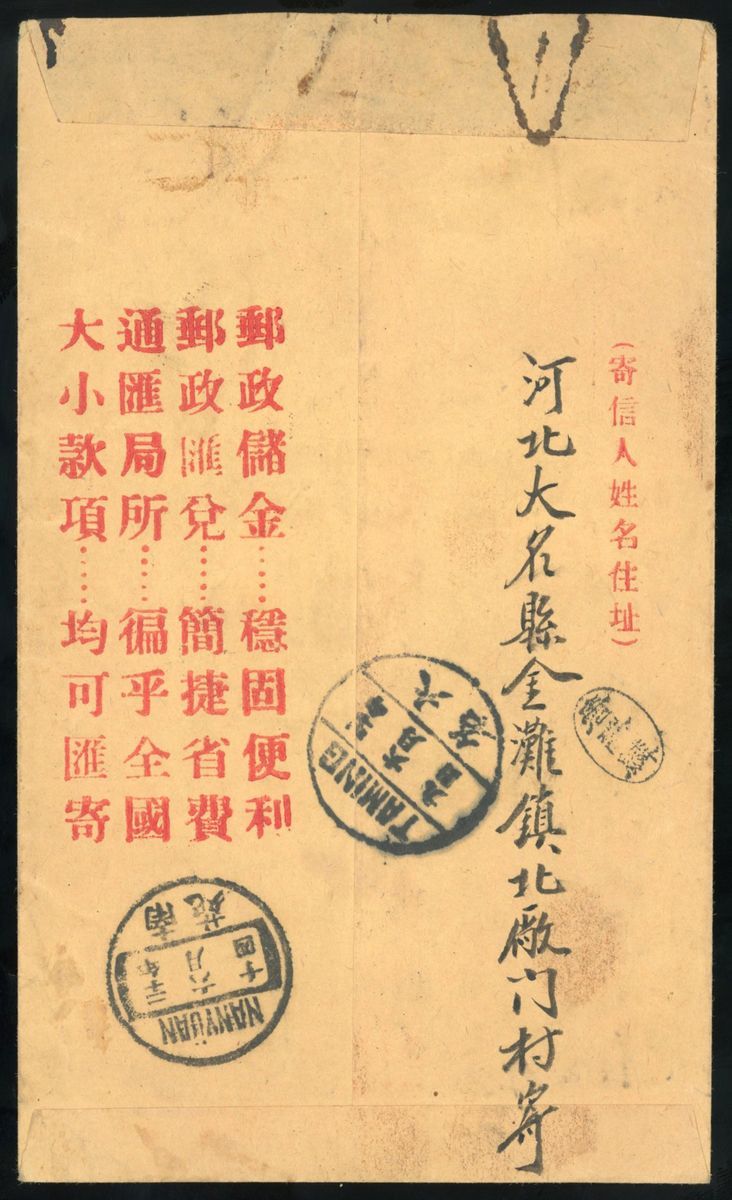 (寄信人姓名住址)
河北大名縣金灘鎮北廠门村寄
郵政儲金……穩固便利
郵政匯兌……簡捷省費
通匯局所……徧乎全國
大小款項……均可匯寄
TAMING
NANYÜAN
南苑
二十年
六月
十四